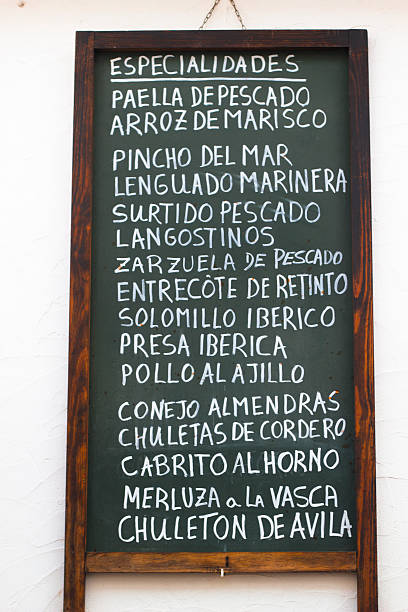 ESPECIALIDADES
PAELLA DE PESCADO
ARROZ DE MARISCO
PINCHO DEL MAR
LENGUADO MARINERA
SURTIDO PESCADO
LANGOSTINOS
ZARZUELA DE PESCADO
ENTRECÔTE DE RETINTO
SOLOMILLO IBERICO
PRESA IBERICA
POLLO AL AJILLO
CONEJO ALMENDRAS
CHULETAS DE CORDERO
CABRITO AL HORNO
MERLUZA a LA VASCA
CHULETON DE AVILA